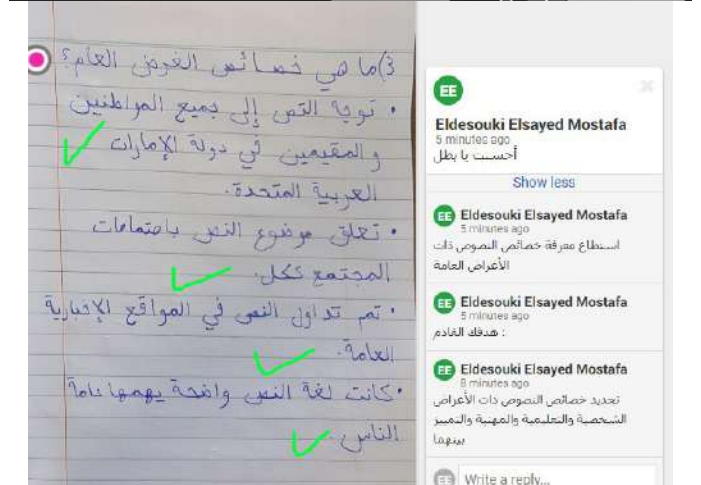 3) ما هي خصائص الغرض العام؟
• توجه النص إلى جميع المواطنين
والمقيمين في دولة الإمارات
العربية المتحدة.
• تعلق موضوع النص باهتمامات
المجتمع ككل.
• تم تداول النص في المواقع الإخبارية
العامة.
• كانت لغة النص واضحة يهمها عامة
الناس.
EE
Eldesouki Elsayed Mostafa
5 minutes ago
أحسنت يا بطل
Show less
EE Eldesouki Elsayed Mostafa
5 minutes ago
استطاع معرفة خصائص النصوص ذات
الأغراض العامة
EE Eldesouki Elsayed Mostafa
5 minutes ago
: هدفك القادم
EE Eldesouki Elsayed Mostafa
8 minutes ago
تحديد خصائص النصوص ذات الأغراض
الشخصية والتعليمية والمهنية والتمييز
بينهما
EE Write a reply...